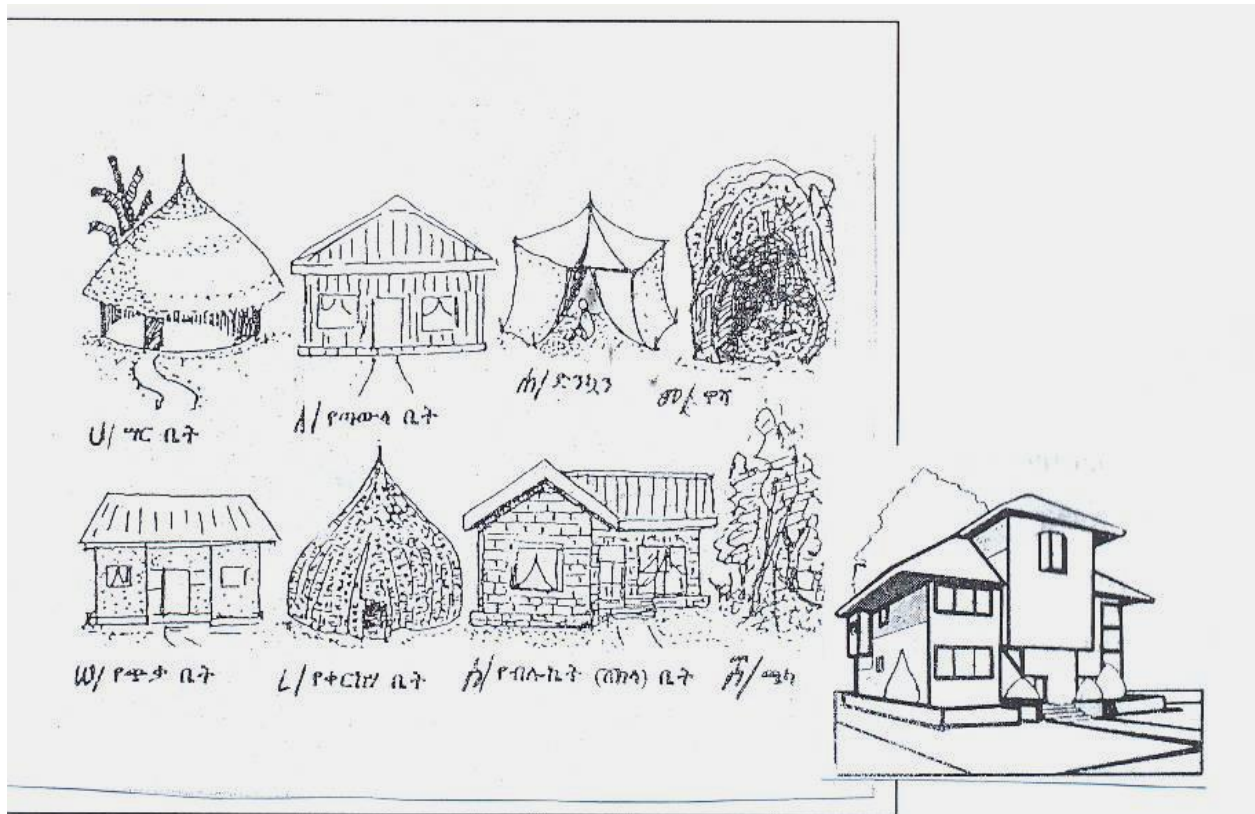 ሀ/ ሣር ቤት
ለ/ የጣውላ ቤት
ሐ/ ድንኳን
መ/ ዋሻ
ሠ/ የጭቃ ቤት
ረ/ የቀርከሃ ቤት
ሰ/ የብሎኬት (ሸክላ) ቤት
ሸ/ ጫካ